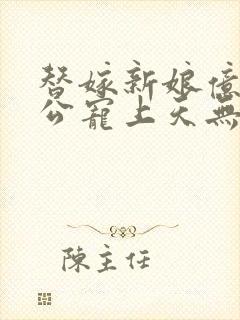 替嫁新娘億
公寵上天無
陳主任